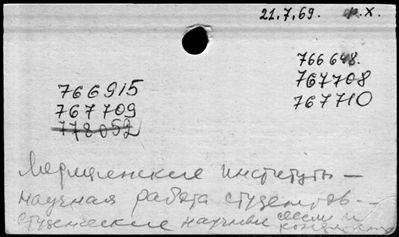 21.7.69. р.х.
766915
767709
778052
766648.
767708
767710
Медицинские институты —
научная работа студентов. —
студенческие научные сессии и